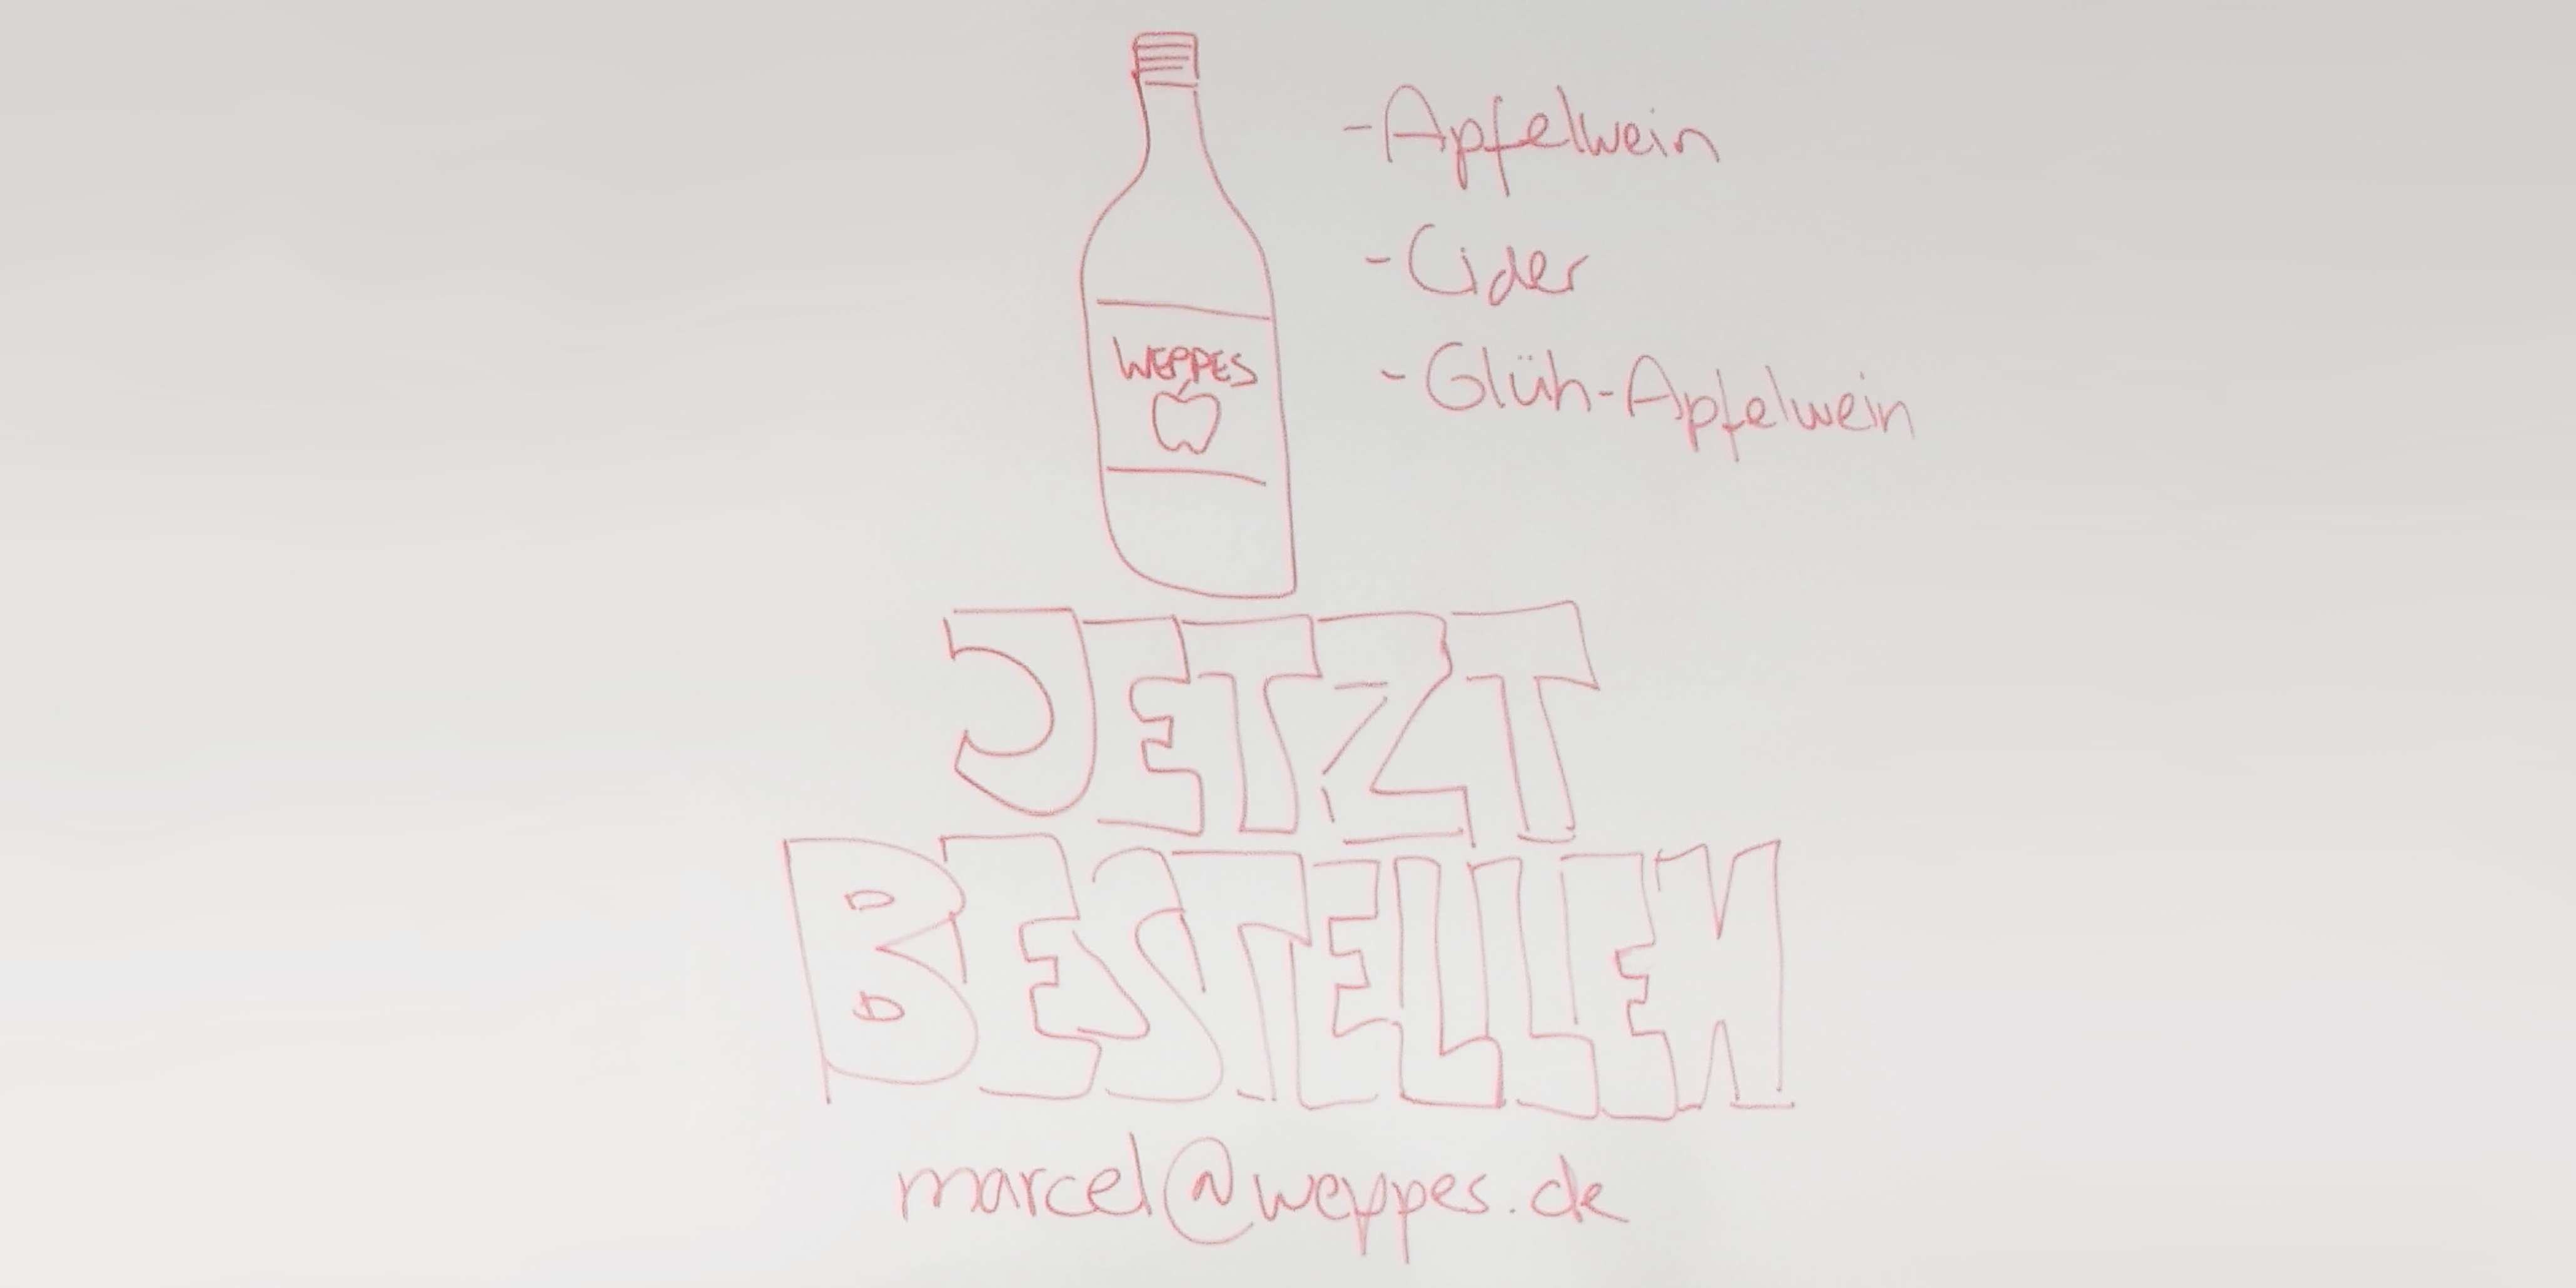 - Apfelwein
- Cider
- Glüh-Apfelwein
WEPPES
JETZT
BESTELLEN
marcel@weppes.de